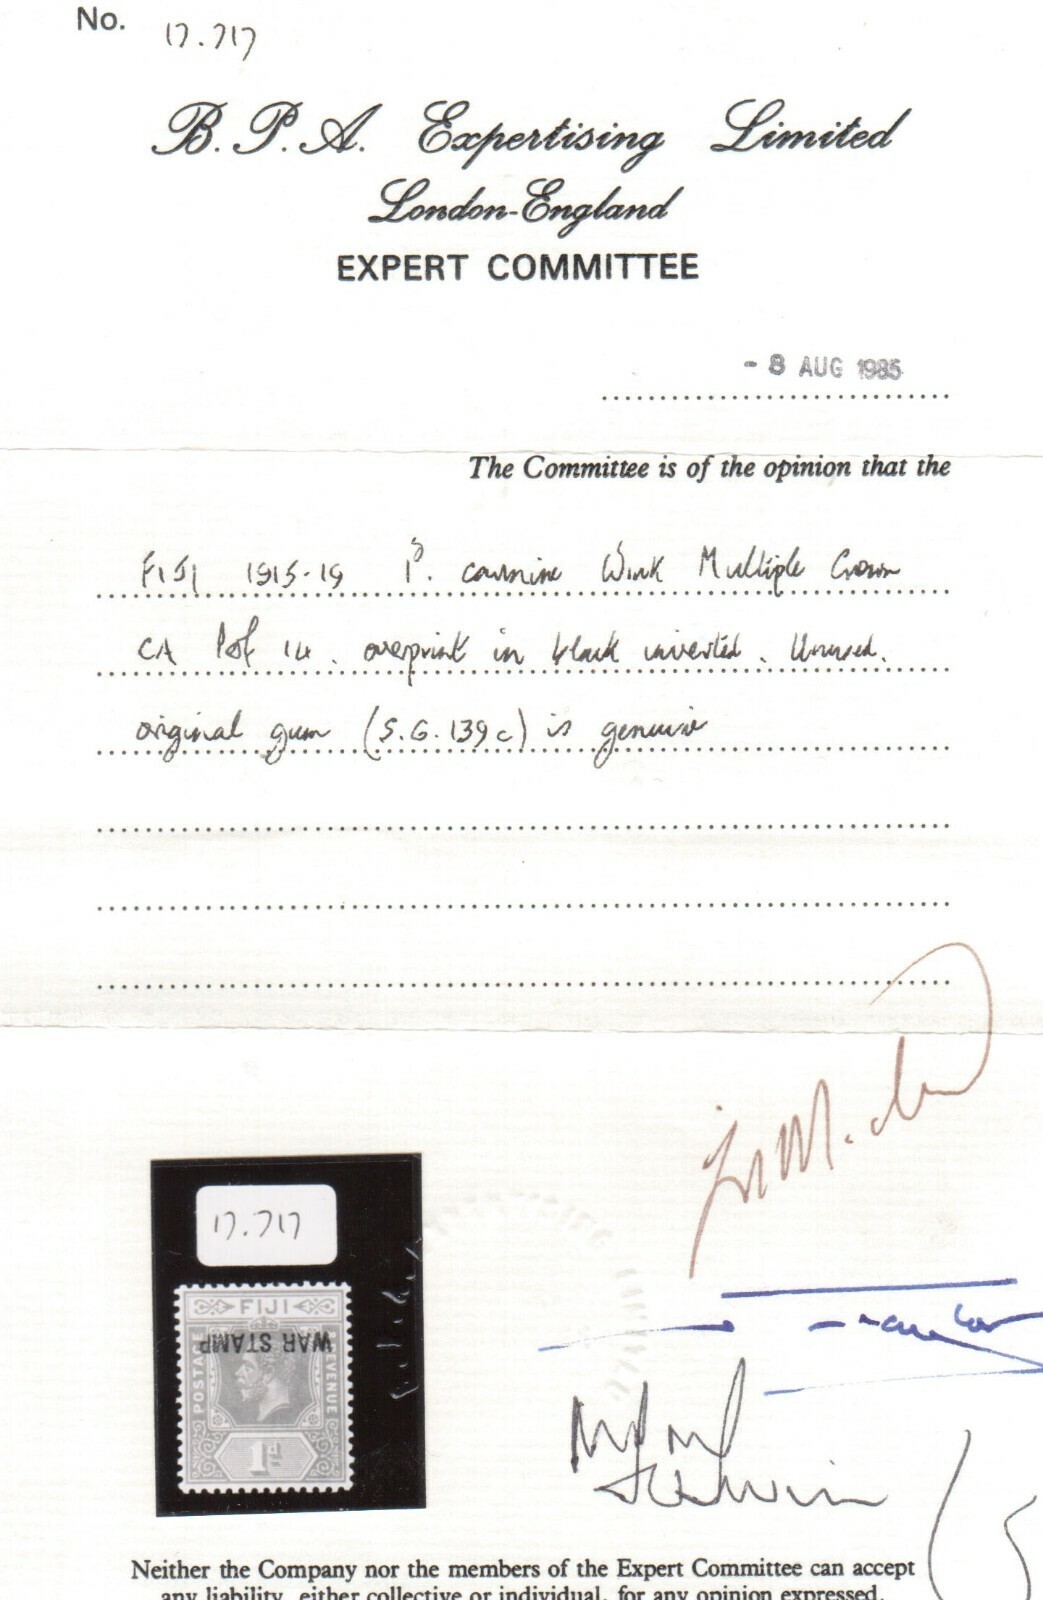 No. 17.717
B. P. A. Expertising Limited
London-England
EXPERT COMMITTEE
- 8 AUG 1985
The Committee is of the opinion that the
FIJI 1915-19 1D. carmine Wmk Multiple Crown
CA Perf 14. overprint in black inverted. Unused.
original gum (S.G. 139c) is genuine
17.717
FIJI
WAR STAMP
POSTAGE
REVENUE
1d
Neither the Company nor the members of the Expert Committee can accept
any liability, either collective or individual, for any opinion expressed.